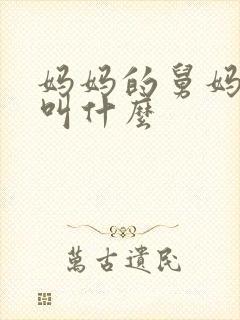 妈妈的舅妈
叫什麼
萬古遺民